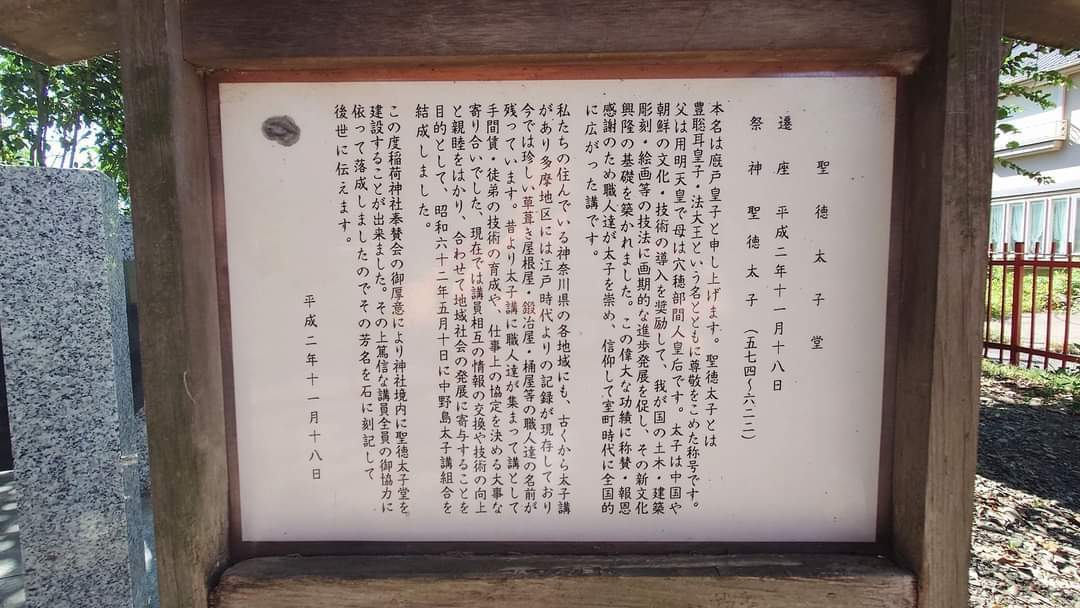 聖徳太子堂
遷座 平成二年十一月十八日
祭神 聖徳太子（五七四～六二二）
本名は廐戸皇子と申し上げます。聖徳太子とは
豊聡耳皇子・法大王という名とともに尊敬をこめた称号です。
父は用明天皇で母は穴穂部間人皇后です。太子は中国や
朝鮮の文化・技術の導入を奨励して、我が国の土木・建築
彫刻・絵画等の技法に画期的な進歩発展を促し、その新文化
興隆の基礎を築かれました。この偉大な功績に称賛・報恩
感謝のため職人達が太子を崇め、信仰して室町時代に全国的
に広がった講です。
私たちの住んでいる神奈川県の各地域にも、古くから太子講
があり多摩地区には江戸時代よりの記録が現存しており
今では珍しい草葺き屋根屋・鍛冶屋・桶屋等の職人達の名前が
残っています。昔より太子講に職人達が集まって講として
手間賃・徒弟の技術の育成や、仕事上の協定を決める大事な
寄り合いでした、現在では講員相互の情報の交換や技術の向上
と親睦をはかり、合わせて地域社会の発展に寄与することを
目的として、昭和六十二年五月十日に中野島太子講組合を
結成しました。
この度稲荷神社奉賛会の御厚意により神社境内に聖徳太子堂を
建設することが出来ました。その上篤信な講員全員の御協力に
依って落成しましたのでその芳名を石に刻記して
後世に伝えます。
平成二年十一月十八日